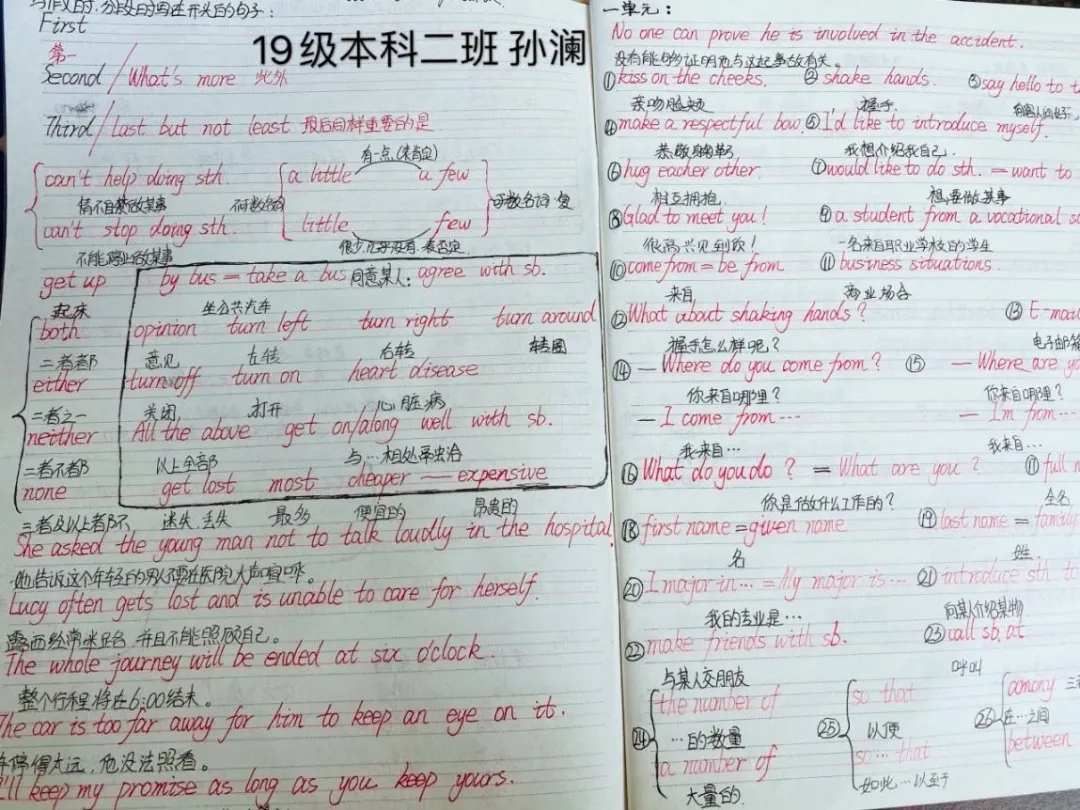 写作文时,分段时写在开头的句子:
First
19级本科二班 孙澜
第一
Second / What's more 此外
Third / Last but not least 最后同样重要的是
有一点(表肯定)
can't help doing sth. a little a few
情不自禁做某事 不可数名词 可数名词 复
can't stop doing sth. little few
不能停止做某事 很少,几乎没有,表否定
get up by bus = take a bus 同意某人: agree with sb.
起床 坐公共汽车
both opinion turn left turn right turn around
二者都 意见 左转 右转 转圈
either turn off turn on heart disease
二者之一 关闭 打开 心脏病
neither All the above get on/along well with sb.
二者都不 以上全部 与…相处融洽
none get lost most cheaper — expensive
三者及以上者都不 迷失,丢失 最多 便宜的 昂贵的
She asked the young man not to talk loudly in the hospital.
她告诉这个年轻的男人不要在医院大声喧哗。
Lucy often gets lost and is unable to care for herself.
露西经常迷路,并且不能照顾自己。
The whole journey will be ended at six o'clock.
整个行程将在6:00结束。
The car is too far away for him to keep an eye on it.
车停得太远,他没法照看。
I'll keep my promise as long as you keep yours.
一单元:
No one can prove he is involved in the accident.
没有能够证明他与这起事故有关。
①kiss on the cheeks. ②shake hands. ③say hello to
亲吻脸颊 握手.
④make a respectful bow. ⑤I'd like to introduce myself.
恭敬鞠躬 我想介绍我自己.
⑥hug eacher other. ⑦would like to do sth. = want to
相互拥抱 想要做某事
⑧Glad to meet you! ⑨a student from a vocational
很高兴见到你! 一名来自职业学校的学生
⑩come from = be from ⑪business situations.
来自 商业场合
⑫What about shaking hands? ⑬E-mail
握手怎么样呢? 电子邮箱
⑭—Where do you come from? ⑮—Where are
你来自哪里? 你来自哪里?
—I come from … —I'm from…
我来自… 我来自…
⑯What do you do? = What are you? ⑰full
你是做什么工作的? 全名
⑱first name = given name ⑲last name = family
名 姓
⑳I major in… = My major is… ㉑introduce sth to
我的专业是… 向某人介绍某物
㉒make friends with sb. ㉓call sb. at
与某人交朋友 呼叫
㉔the number of ㉕so that ㉖among
…的数量 以便 在…之间
a number of so … that between
大量的. 如此…以至于